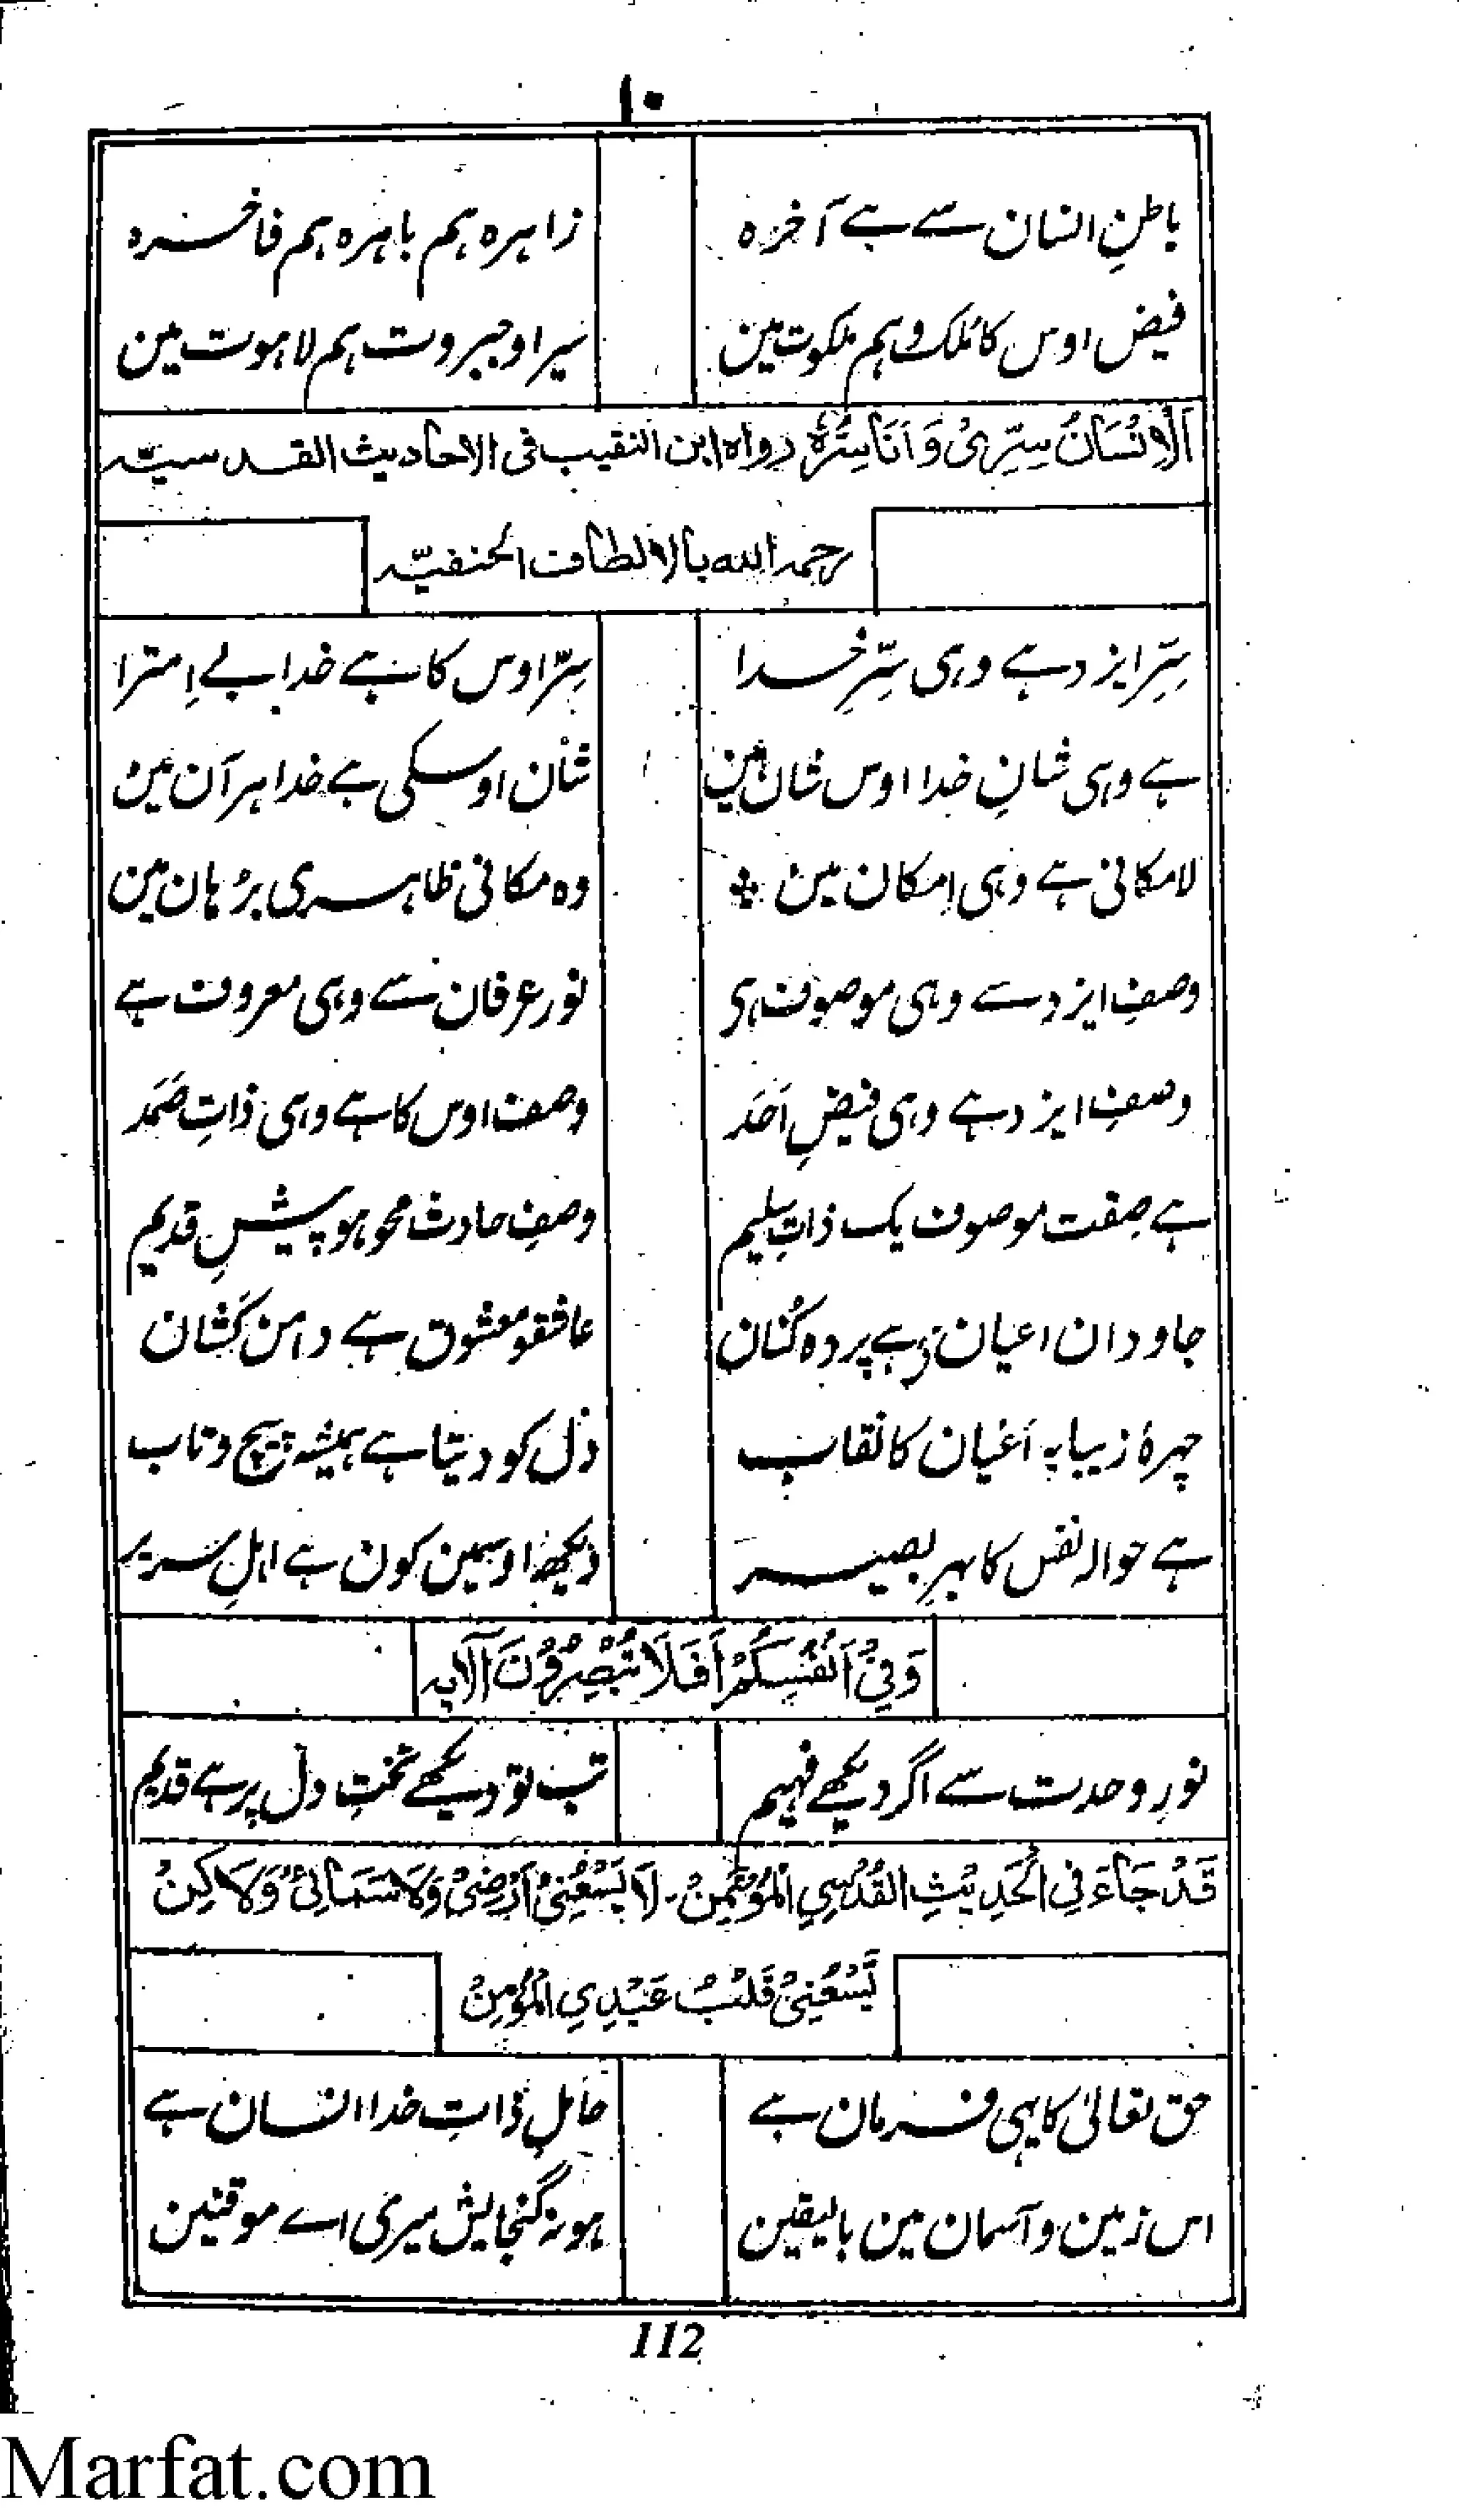 ۱۰
باطنِ انسان سے ہے آخرہ زاہرہ ہم باہرہ ہم فاخرہ
فیض اوس کا ملک و ہم ملکوت مین سیر او جبروت ہم لاہوت مین
اَلْاِنْسَانُ سِرِّیْ وَ اَنَا سِرُّہٗ رواہ ابن النقیب فی الاحادیث القدسیّہ
رحمہ اللہ بالالطاف الحنفیّہ
سِرِّ ایزد ہے وہی سِرِّ خدا سِرّ اوس کا ہے خدا بے اِمترا
ہے وہی شانِ خدا اوس شان مین شان اوسکی ہے خدا ہر آن مین
لامکانی ہے وہی اِمکان مین ٭ وہ مکانی ظاہری بُرہان مین
وصفِ ایزد سے وہی موصوف ہی نورِ عرفان سے وہی معروف ہے
وصفِ ایزد ہے وہی فیضِ اَحَد وصف اوس کا ہے وہی ذاتِ صَمَد
ہے صِفت موصوف یک ذاتِ سلیم وصفِ حادث محو ہو پیشِ قدیم
جاودان اعیان ہے پردہ کُنان عاشق و معشوق ہے دامن کَشان
چہرۂ زیبا پہ اَعْیان کا نقاب دل کو دیتا ہے ہمیشہ پیچ و تاب
ہے حوالہ نفس کا بہرِ بصیر دیکھ اوسمین کون ہے اہلِ سریر
وَفِیْ اَنْفُسِکُمْ اَفَلَا تُبْصِرُوْنَ اَلآیہ
نورِ وحدت سے اگر دیکھے فہیم تب تو دیکھے تختِ دل پر ہے قدیم
قَدْ جَاءَ فِی الْحَدِیْثِ الْقُدْسِیِ الْمُؤْمِنْ۔ لَا یَسَعُنِیْ اَرْضِیْ وَلَا سَمَائِیْ وَلَاکِنْ
یَسَعُنِیْ قَلْبُ عَبْدِیِ الْمُؤْمِنْ
حق تعالیٰ کا یہی فرمان ہے حامِلِ ذاتِ خدا انسان ہے
اس زمین و آسمان مین بالیقین ہو نہ گنجایش میری اے موقنین
112
Marfat.com